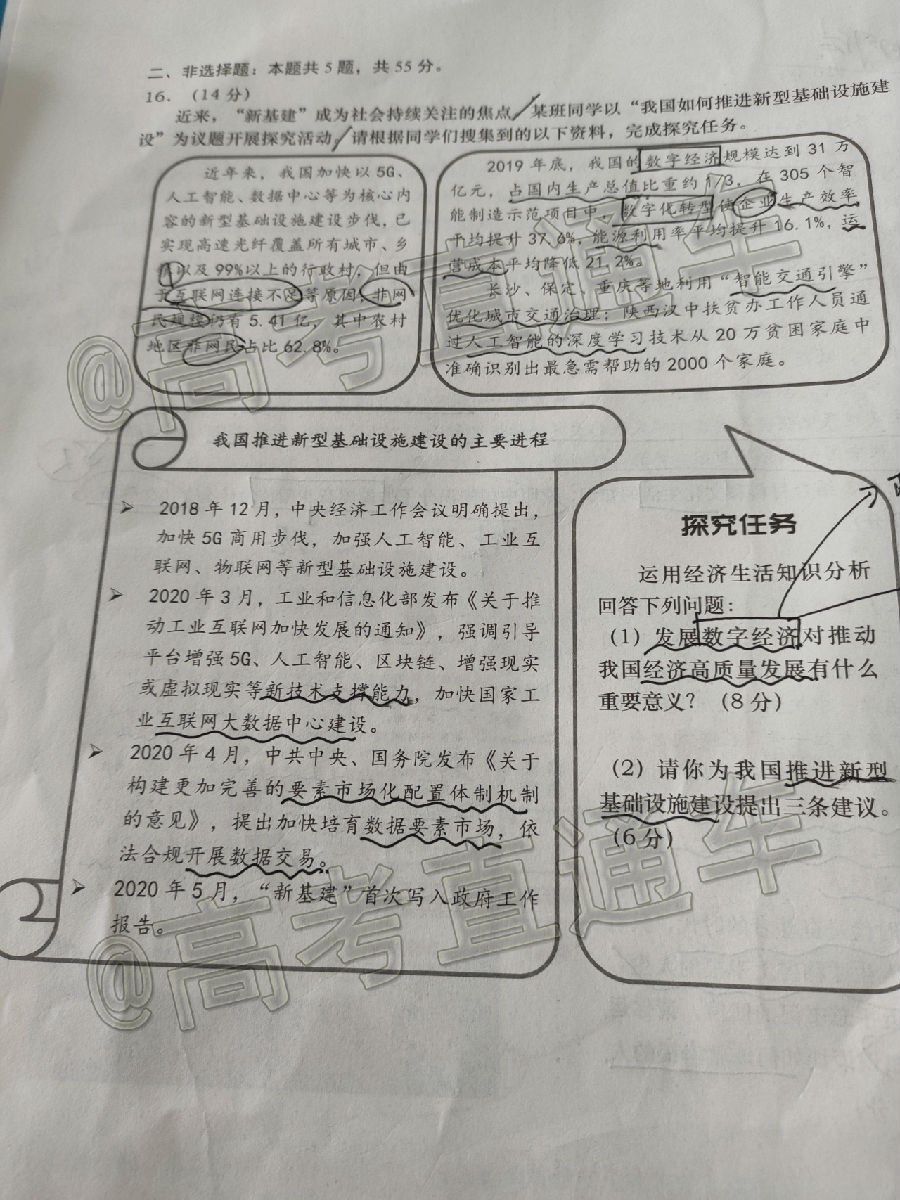 二、非选择题：本题共5题，共55分。
16．（14分）
近来，“新基建”成为社会持续关注的焦点，某班同学以“我国如何推进新型基础设施建
设”为议题开展探究活动，请根据同学们搜集到的以下资料，完成探究任务。
近年来，我国加快以5G、
人工智能、数据中心等为核心内
容的新型基础设施建设步伐，已
实现高速光纤覆盖所有城市、乡
以及99%以上的行政村，但由
互联网连接不 等原因，非网
民规模仍有5.41亿，其中农村
地区非网民占比62.8%。
2019年底，我国的数字经济规模达到31万
亿元，占国内生产总值比重约1/3，在305个智
能制造示范项目中，数字化转型使企业生产效率
平均提升37.6%，能源利用率平均提升16.1%，运
营成本平均降低21.2%。
长沙、保定、重庆等地利用“智能交通引擎”
优化城市交通治理；陕西汉中扶贫办工作人员通
过人工智能的深度学习技术从20万贫困家庭中
准确识别出最急需帮助的2000个家庭。
我国推进新型基础设施建设的主要进程
➢ 2018年12月，中央经济工作会议明确提出，
加快5G商用步伐，加强人工智能、工业互
联网、物联网等新型基础设施建设。
➢ 2020年3月，工业和信息化部发布《关于推
动工业互联网加快发展的通知》，强调引导
平台增强5G、人工智能、区块链、增强现实
或虚拟现实等新技术支撑能力，加快国家工
业互联网大数据中心建设。
➢ 2020年4月，中共中央、国务院发布《关于
构建更加完善的要素市场化配置体制机制
的意见》，提出加快培育数据要素市场，依
法合规开展数据交易。
➢ 2020年5月，“新基建”首次写入政府工作
报告。
探究任务
运用经济生活知识分析
回答下列问题：
（1）发展数字经济对推动
我国经济高质量发展有什么
重要意义？（8分）
（2）请你为我国推进新型
基础设施建设提出三条建议。
（6分）
@高考直通车
@高考直通车